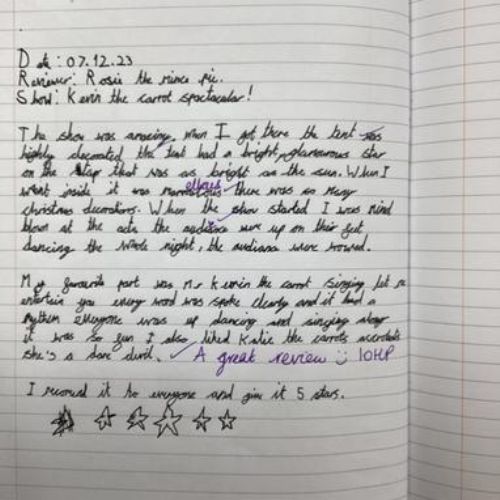 Date: 07.12.23
Reviewer: Rosie the mince pie.
Show: Kevin the carrot spactacular!
The show was amazing, when I got there the tent was
highly decorated the tent had a bright, glamourous star
on the top that was as bright as the sun. When I
went inside it was marvellous there was so many
christmas decorations. When the show started I was mind
blown at the acts the audience were up on their feet
dancing the whole night, the audians were wowed.
My favourite part was Mr Kevin the carrot singing let me
entertin you every word was spoke clearly and it had a
rythem everyone was up dancing and singing along
it was so fun I also liked Katie the carrots
she's a dare devil. A great review 10HP
I recomed it to everyone and give it 5 stars.